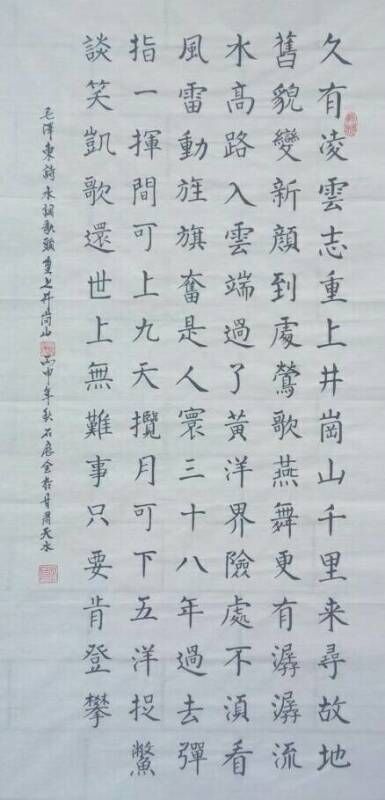 久有凌雲志重上井崗山千里来尋故地
舊貌變新顏到處鶯歌燕舞更有潺潺流
水高路入雲端過了黃洋界險處不湏看
風雷動旌旗奮是人寰三十八年過去彈
指一揮間可上九天攬月可下五洋捉鱉
談笑凱歌還世上無難事只要肯登攀
毛澤東詩水調歌頭重上井崗山 丙申年秋石 甘肅天水